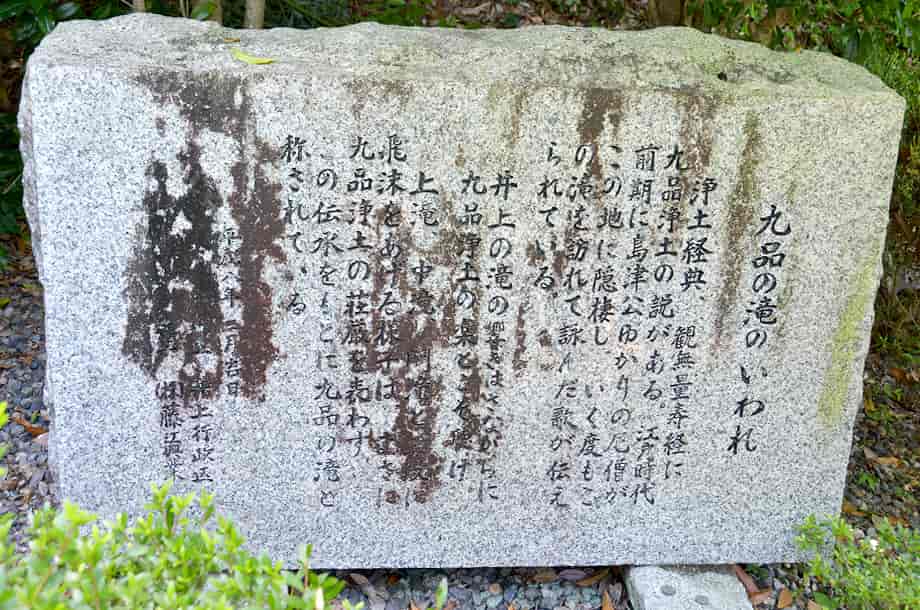 九品の滝のいわれ
浄土経典、観無量寿経に
九品浄土の説がある。江戸時代
前期に島津公ゆかりの尼僧が
この地に隠棲し、いく度もこ
の滝を訪れて詠んだ歌が伝え
られている。
井上の滝の響きはさながらに
九品浄土の楽とこそ聴け。
上滝、中滝、門滝と
飛沫をあげる様子は、まさに
九品浄土の荘厳を表わす
この伝承をもとに九品の滝と
称されている
平成八年三月吉日
上行政区